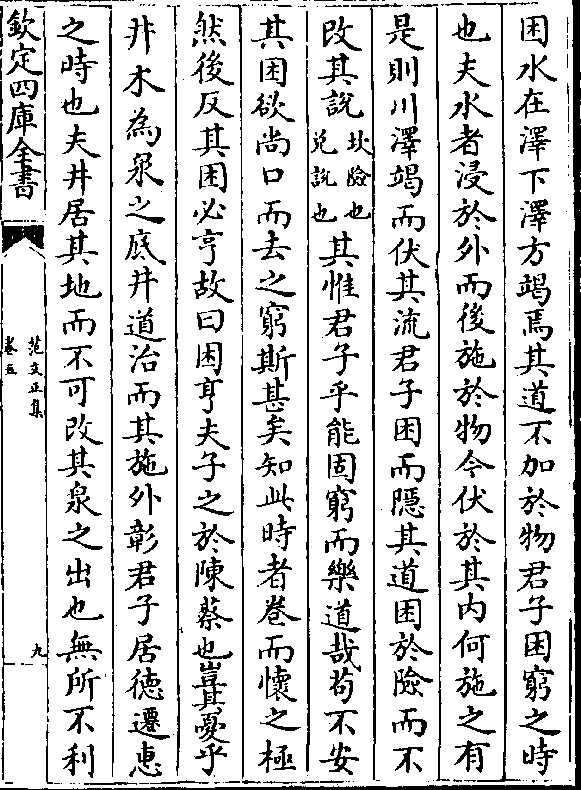 困水在澤下澤方竭焉其道不加於物君子困窮之時
也夫水者浸於外而後施於物今伏於其内何施之有
是則川澤竭而伏其流君子困而隱其道困於險而不
改其說坎險也兌說也其惟君子乎能固窮而樂道哉苟不安
其困欲尚口而去之窮斯甚矣知此時者卷而懷之極
然後反其困必亨故曰困亨夫子之於陳蔡也豈其憂乎
井木為泉之底井道治而其施外彰君子居德遷惠
之時也夫井居其地而不可改其泉之出也無所不利
欽定四庫全書
范文正集
卷五
九